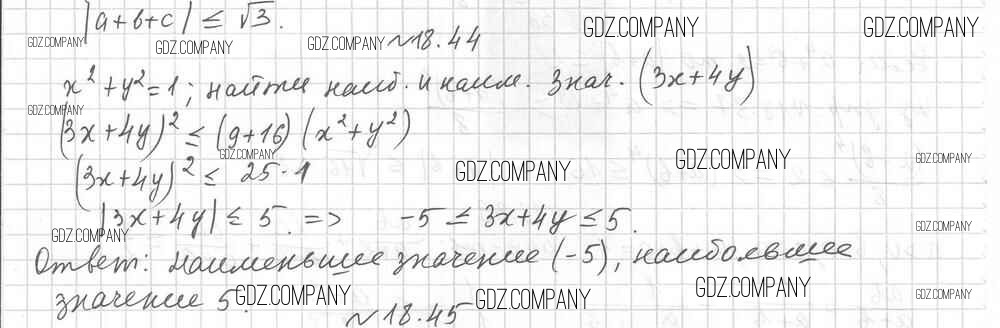 |a+b+c| ≤ √3.
GDZ.COMPANY GDZ.COMPANY GDZ.COMPANY №18.44 GDZ.COMPANY GDZ.COMPANY
x²+y²=1; найти наиб. и наим. знач. (3x+4y)
GDZ.COMPANY
(3x+4y)² ≤ (9+16)(x²+y²)
GDZ.COMPANY GDZ.COMPANY GDZ.COMPANY
(3x+4y)² ≤ 25·1 GDZ.COMPANY
|3x+4y| ≤ 5. => -5 ≤ 3x+4y ≤ 5.
GDZ.COMPANY GDZ.COMPANY
Ответ: наименьшее значение (-5), наибольшее
значение 5. GDZ.COMPANY GDZ.COMPANY GDZ.COMPANY GDZ.COMPANY
№18.45